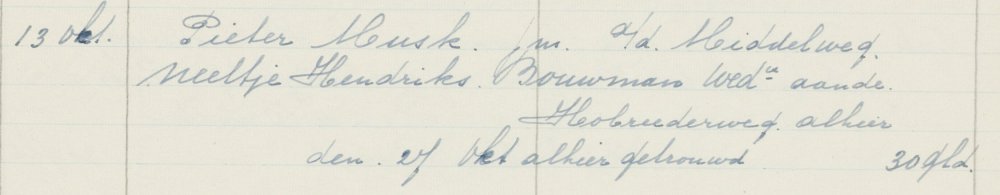 13 Okt. Pieter Musk. jm. a/d. Middelweg.
Neeltje Hendriks. Bouwman Wedᵉ aande.
Hobrederweg. alhier
den. 27 Okt alhier getrouwd 30 gld.